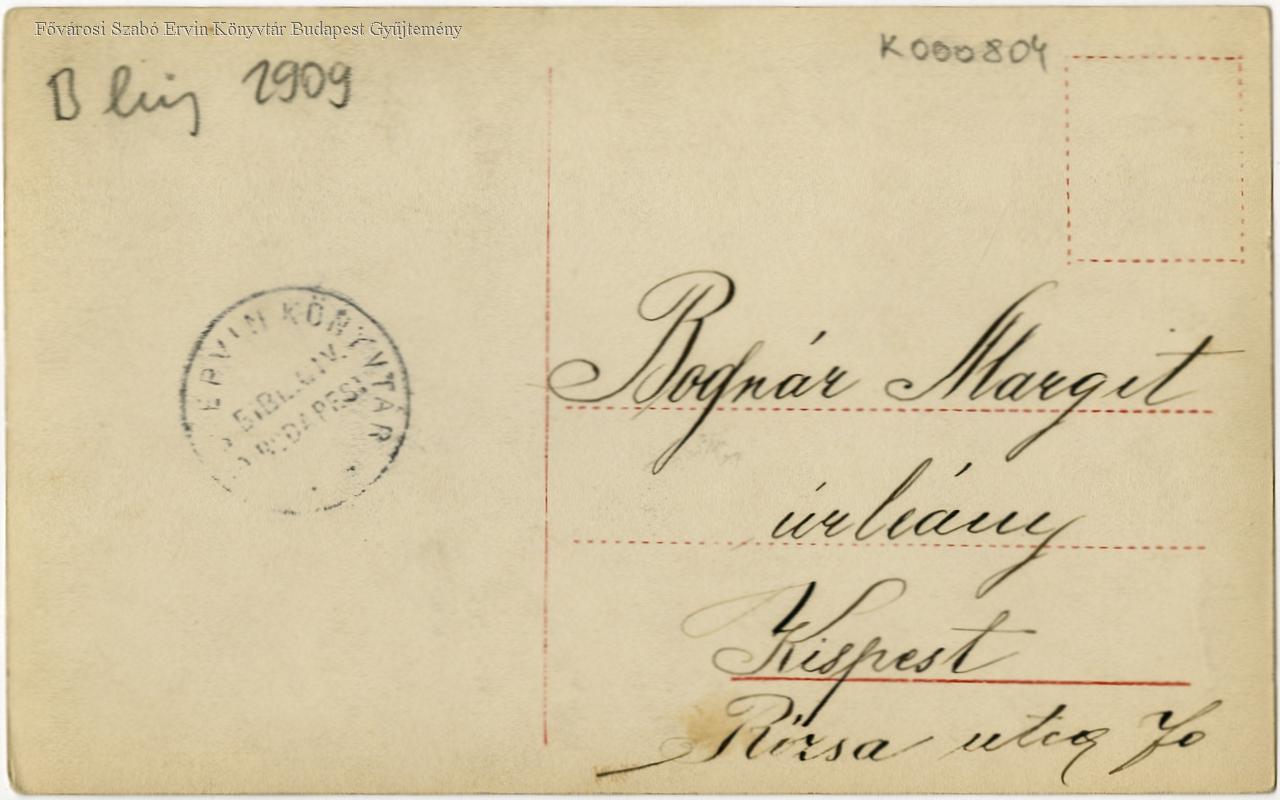 Fővárosi Szabó Ervin Könyvtár Budapest Gyűjtemény
K000804
B lúj 1909
ERVIN KÖNYVTÁR
BUDAPEST
Bognár Margit
úrleány
Kispest
Rózsa utca 70